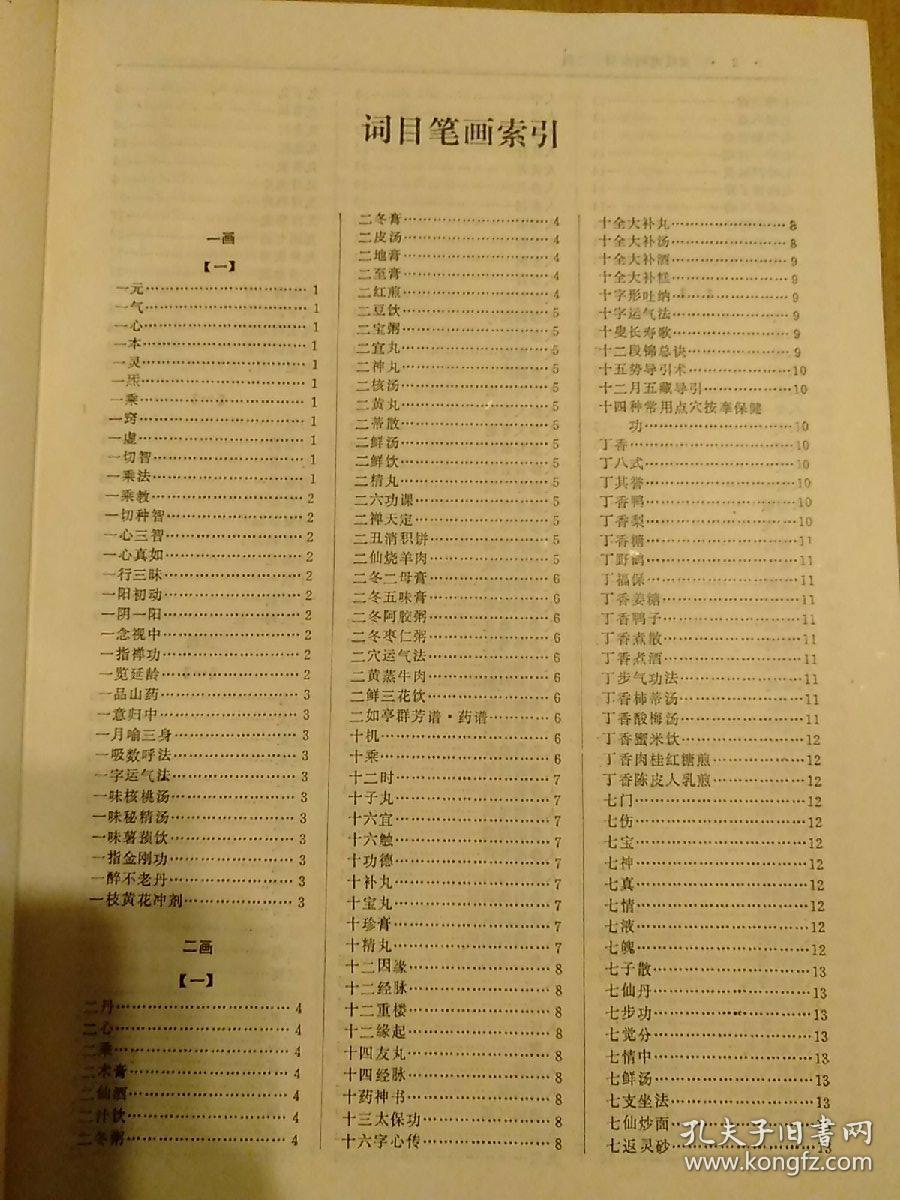 词目笔画索引
一画
【一】
一元……1
一气……1
一心……1
一本……1
一灵……1
一炁……1
一乘……1
一窍……1
一虚……1
一切智……1
一乘法……1
一乘教……2
一切种智……2
一心三智……2
一心真如……2
一行三昧……2
一阳初动……2
一阴一阳……2
一念视中……2
一指禅功……2
一览延龄……2
一品山药……3
一意归中……3
一月喻三身……3
一吸数呼法……3
一字运气法……3
一味核桃汤……3
一味秘精汤……3
一味薯蓣饮……3
一指金刚功……3
一醉不老丹……3
一枝黄花冲剂……3
二画
【一】
二丹……4
二心……4
二乘……4
二术膏……4
二仙酒……4
二汁饮……4
二冬粥……4
二冬膏……4
二皮汤……4
二地膏……4
二至膏……4
二红煎……4
二豆饮……5
二宝粥……5
二宜丸……5
二神丸……5
二核汤……5
二黄丸……5
二蒂散……5
二鲜汤……5
二鲜饮……5
二精丸……5
二六功课……5
二禅天定……5
二丑消积饼……5
二仙烧羊肉……5
二冬二母膏……6
二冬五味膏……6
二冬阿胶粥……6
二冬枣仁粥……6
二穴运气法……6
二黄蒸牛肉……6
二鲜三花饮……6
二如亭群芳谱·药谱……6
十机……6
十乘……6
十二时……7
十子丸……7
十六宜……7
十六触……7
十功德……7
十补丸……7
十宝丸……7
十珍膏……7
十精丸……7
十二因缘……8
十二经脉……8
十二重楼……8
十二缘起……8
十四友丸……8
十四经脉……8
十药神书……8
十三太保功……8
十六字心传……8
十全大补丸……8
十全大补汤……8
十全大补酒……9
十全大补糕……9
十字形吐纳……9
十字运气法……9
十叟长寿歌……9
十二段锦总诀……9
十五势导引术……10
十二月五藏导引……10
十四种常用点穴按摩保健
功……10
丁香……10
丁八式……10
丁其誉……10
丁香鸭……10
丁香梨……10
丁香糖……11
丁野鹤……11
丁福保……11
丁香姜糖……11
丁香鸭子……11
丁香煮散……11
丁香煮酒……11
丁步气功法……11
丁香柿蒂汤……11
丁香酸梅汤……11
丁香蜜米饮……12
丁香肉桂红糖煎……12
丁香陈皮人乳煎……12
七门……12
七伤……12
七宝……12
七神……12
七真……12
七情……12
七液……12
七魄……12
七子散……13
七仙丹……13
七步功……13
七觉分……13
七情中……13
七鲜汤……13
七支坐法……13
七仙炒面……13
七返灵砂……13
孔夫子旧书网
www.kongfz.com